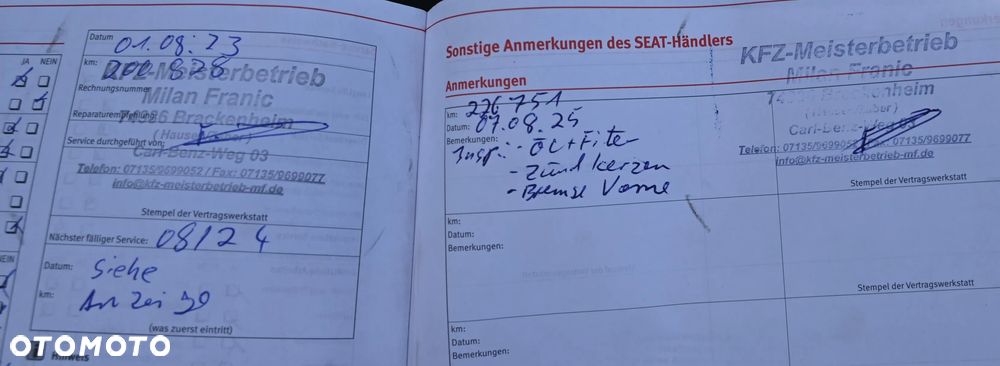 JA NEIN
Datum 01.08.23
km: 200 828
KFZ-Meisterbetrieb
Rechnungsnummer
Milan Franic
Reparaturempfehlung:
74336 Brackenheim
(Hausen
Service durchgeführt von:
Carl-Benz-Weg 03
Telefon: 07135/9699052 / Fax: 07135/9699077
info@kfz-meisterbetrieb-mf.de
Stempel der Vertragswerkstatt
Nächster fälliger Service: 08/24
Datum: Siehe
km: Anzeige
(was zuerst eintritt)
Hinweis
Sonstige Anmerkungen des SEAT-Händlers
Anmerkungen
km: 226 751
Datum: 07.08.25
Bemerkungen:
Insp: - Öl + Filter
- Zündkerzen
- Bremse Vorne
KFZ-Meisterbetrieb
Milan Franic
74336 Brackenheim
Carl-Benz-Weg 03
Telefon: 07135/9699052 / Fax: 07135/9699077
info@kfz-meisterbetrieb-mf.de
Stempel der Vertragswerkstatt
km:
Datum:
Bemerkungen:
Stempel der Vertragswerkstatt
km:
Datum:
Bemerkungen:
OTOMOTO